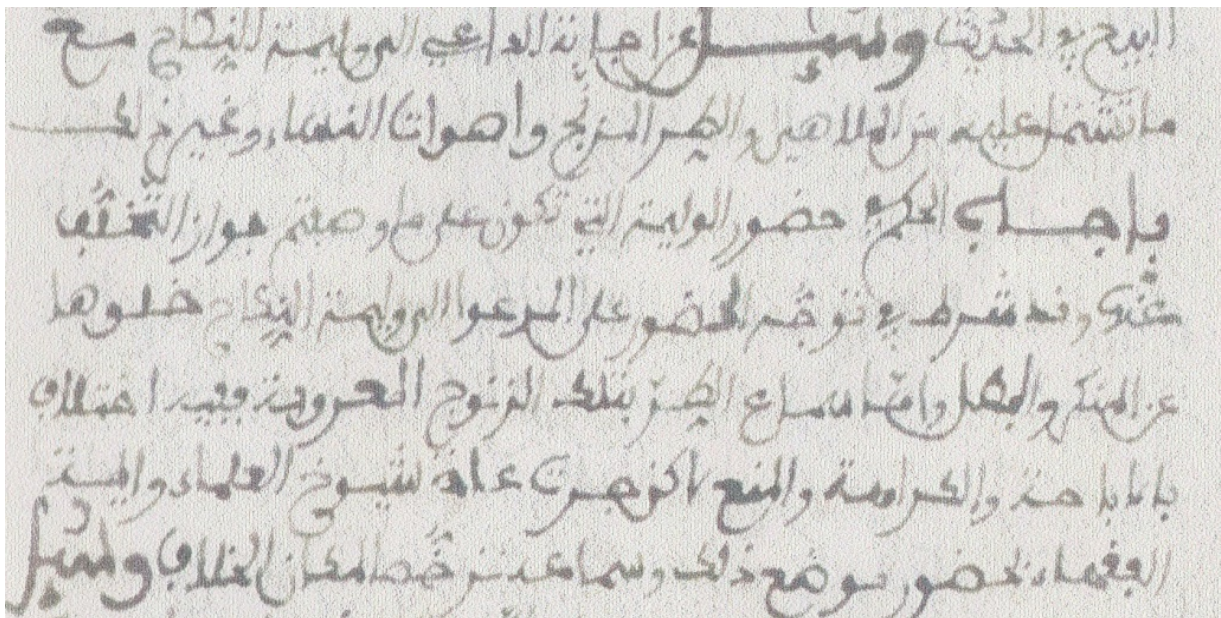 البدع في الحديث وسئل عن اجابة الداعي الى وليمة النكاح مع
ما تشتمل عليه من الملاهي والطر المزنج واصوات النساء وغير ذلك
فاجاب الحكم في حضور الوليمة التي تكون على ما وصفتم جواز التخلف
عنها وقد شرط في توجه الحضور على المدعوا الى وليمة النكاح خلوها
عن المنكر والبطل وامّا سماع الطرّ بتلك الزنوج المعروفة ففيه اختلاف
بالاباحة والكراهة والمنع لاكن جرت عادة شيوخ العلماء وايمة
الفقهاء بحضور موضع ذلك وسماعه ترخصا لمكان الخلاف وسئل